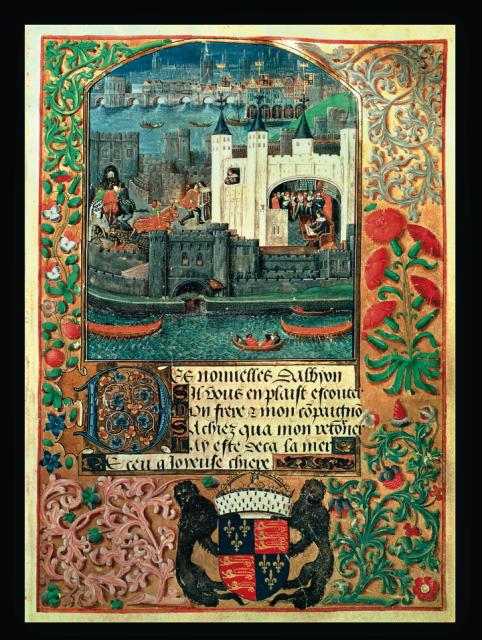 Des nouvelles dalbyon
Sil vous en plaist escouter
Mon frere & mon cōpaignō
Sachiez qua mon retōner
Jay este deca la mer
Receu a Joyeuse chiere